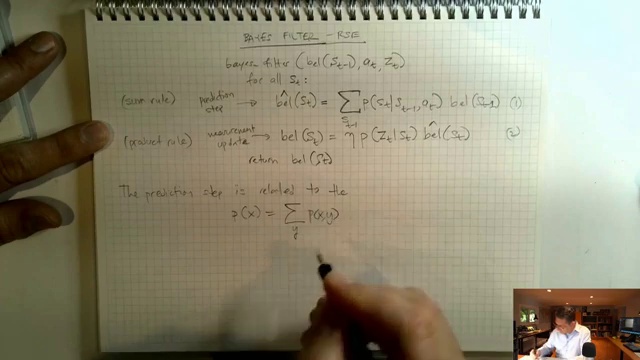 BAYES FILTER - RSE
bayes filter (bel(S_{t-1}), a_t, z_t)
for all S_t:
(sum rule) prediction step → b̂el(S_t) = ∑_{S_{t-1}} p(S_t|S_{t-1}, a_t) bel(S_{t-1}) (1)
(product rule) measurement update → bel(S_t) = η p(z_t|S_t) b̂el(S_t) (2)
return bel(S_t)
The prediction step is related to the
p(x) = ∑_y p(x,y)